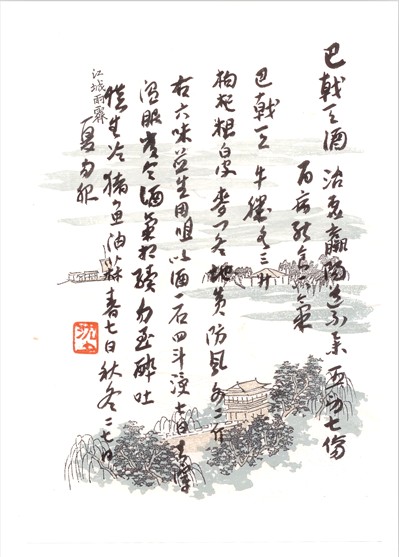 巴戟天酒 治虚羸陽道不舉五劳七傷
百病能食下氣
巴戟天 牛膝各三斤
枸杞根白皮 麦门冬 地黄 防风各二斤
右六味並生用咀以酒一石四斗浸七日去滓
温服常令酒氣相續勿至醉吐
慎生冷猪鱼油蒜春七日秋冬二七日
夏勿服
江城雨霽